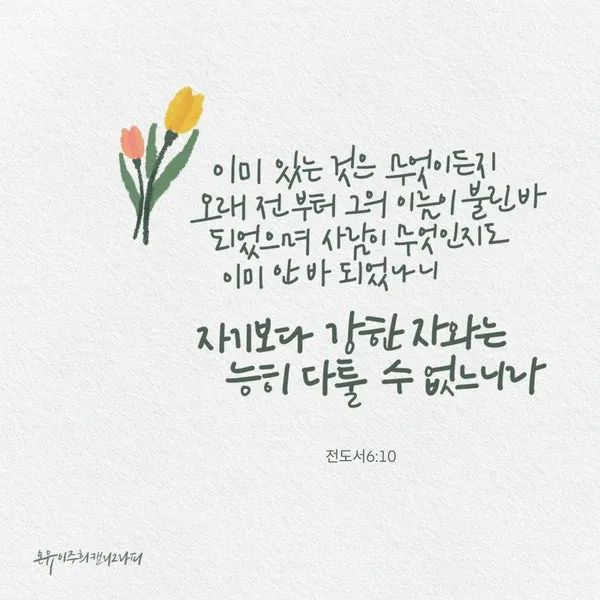 이미 있는 것은 무엇이든지
오래 전부터 그의 이름이 불린바
되었으며 사람이 무엇인지도
이미 안 바 되었나니
자기보다 강한 자와는
능히 다툴 수 없느니라
전도서6:10
온유이주희캘리그라피